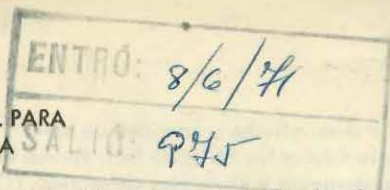 ENTRÓ: 8/6/71
PARA
SALIÓ: P75
A